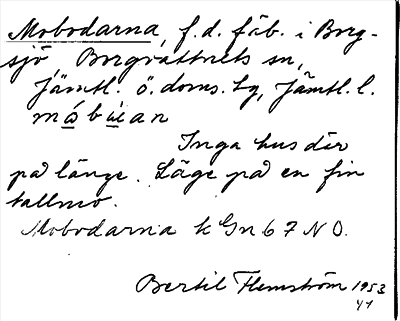 Mobodarna, f.d. fäb. i Borg-
sjö, Borgvattnets sn,
Jämtl. ö. doms. tg, Jämtl. l.
måbùan
Inga hus där
på länge. Läge på en fin
tallmo.
Mobodarna k Gn 6 7 N O.
Bertil Flemström 1953